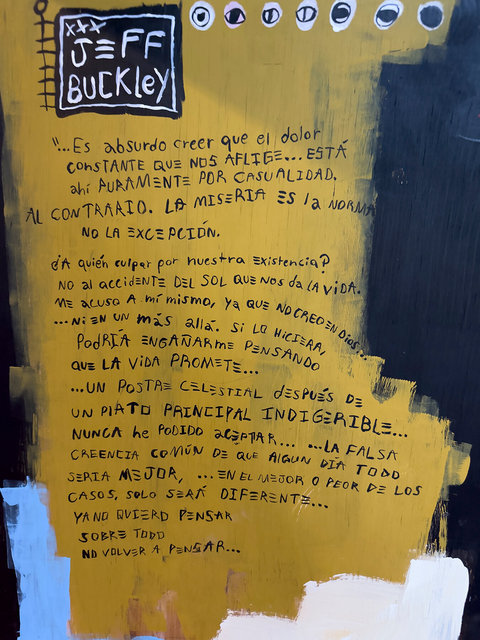 xxx
JEFF
BUCKLEY
"...Es absurdo creer que el dolor
CONSTANTE QUE NOS AFLIGE... ESTÁ
ahí PURAMENTE POR CASUALIDAD.
AL CONTRARIO. LA MISERIA ES la NORMA
NO LA EXCEPCIÓN.
¿A quién culpar por nuestra existencia?
NO al accidente DEL SOL QUE NOS da LA VIDA.
ME acuso A mí mismo, ya QUE NO CREO EN DIOS...
...NI EN UN más allá. Si LO HICIERA,
PODRÍA ENGAÑARME PENSANDO
QUE LA VIDA PROMETE...
...UN POSTRE CELESTIAL después DE
UN PLATO PRINCIPAL INDIGERIBLE...
NUNCA he PODIDO aceptar... ...LA FALSA
CREENCIA COMÚN DE QUE ALGUN DÍA TODO
SERIA MEJOR, ...EN EL MEJOR O PEOR DE LOS
CASOS, SOLO SERÁ DIFERENTE...
YA NO QUIERO PENSAR
SOBRE TODO
NO VOLVER A PENSAR...